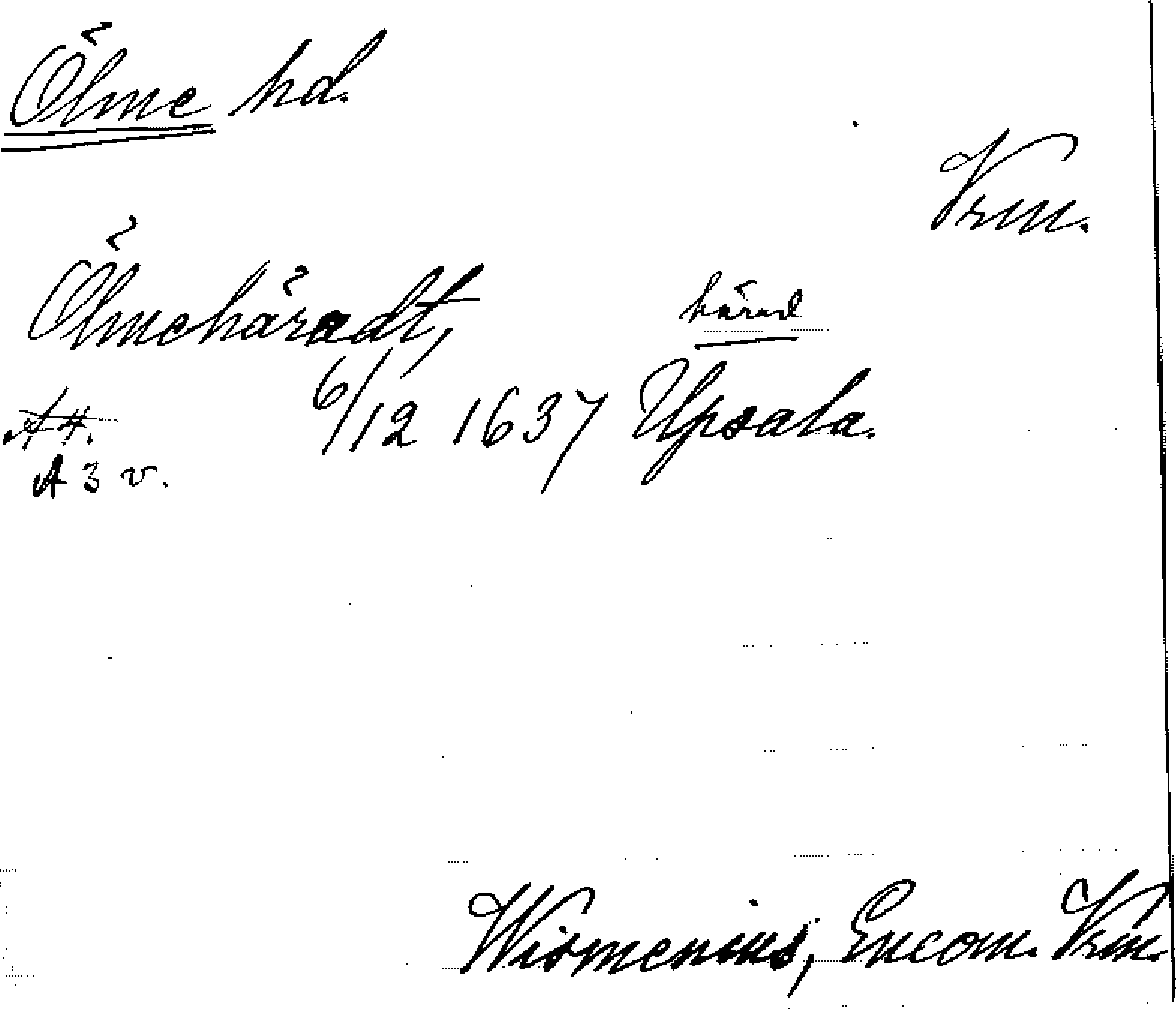 Ölme hd.
Vrm.
Ölmehäradt,
härad
A 4.
6/12 1637 Upsala.
A 3 v.
Wismenius, Encom. Vrm.